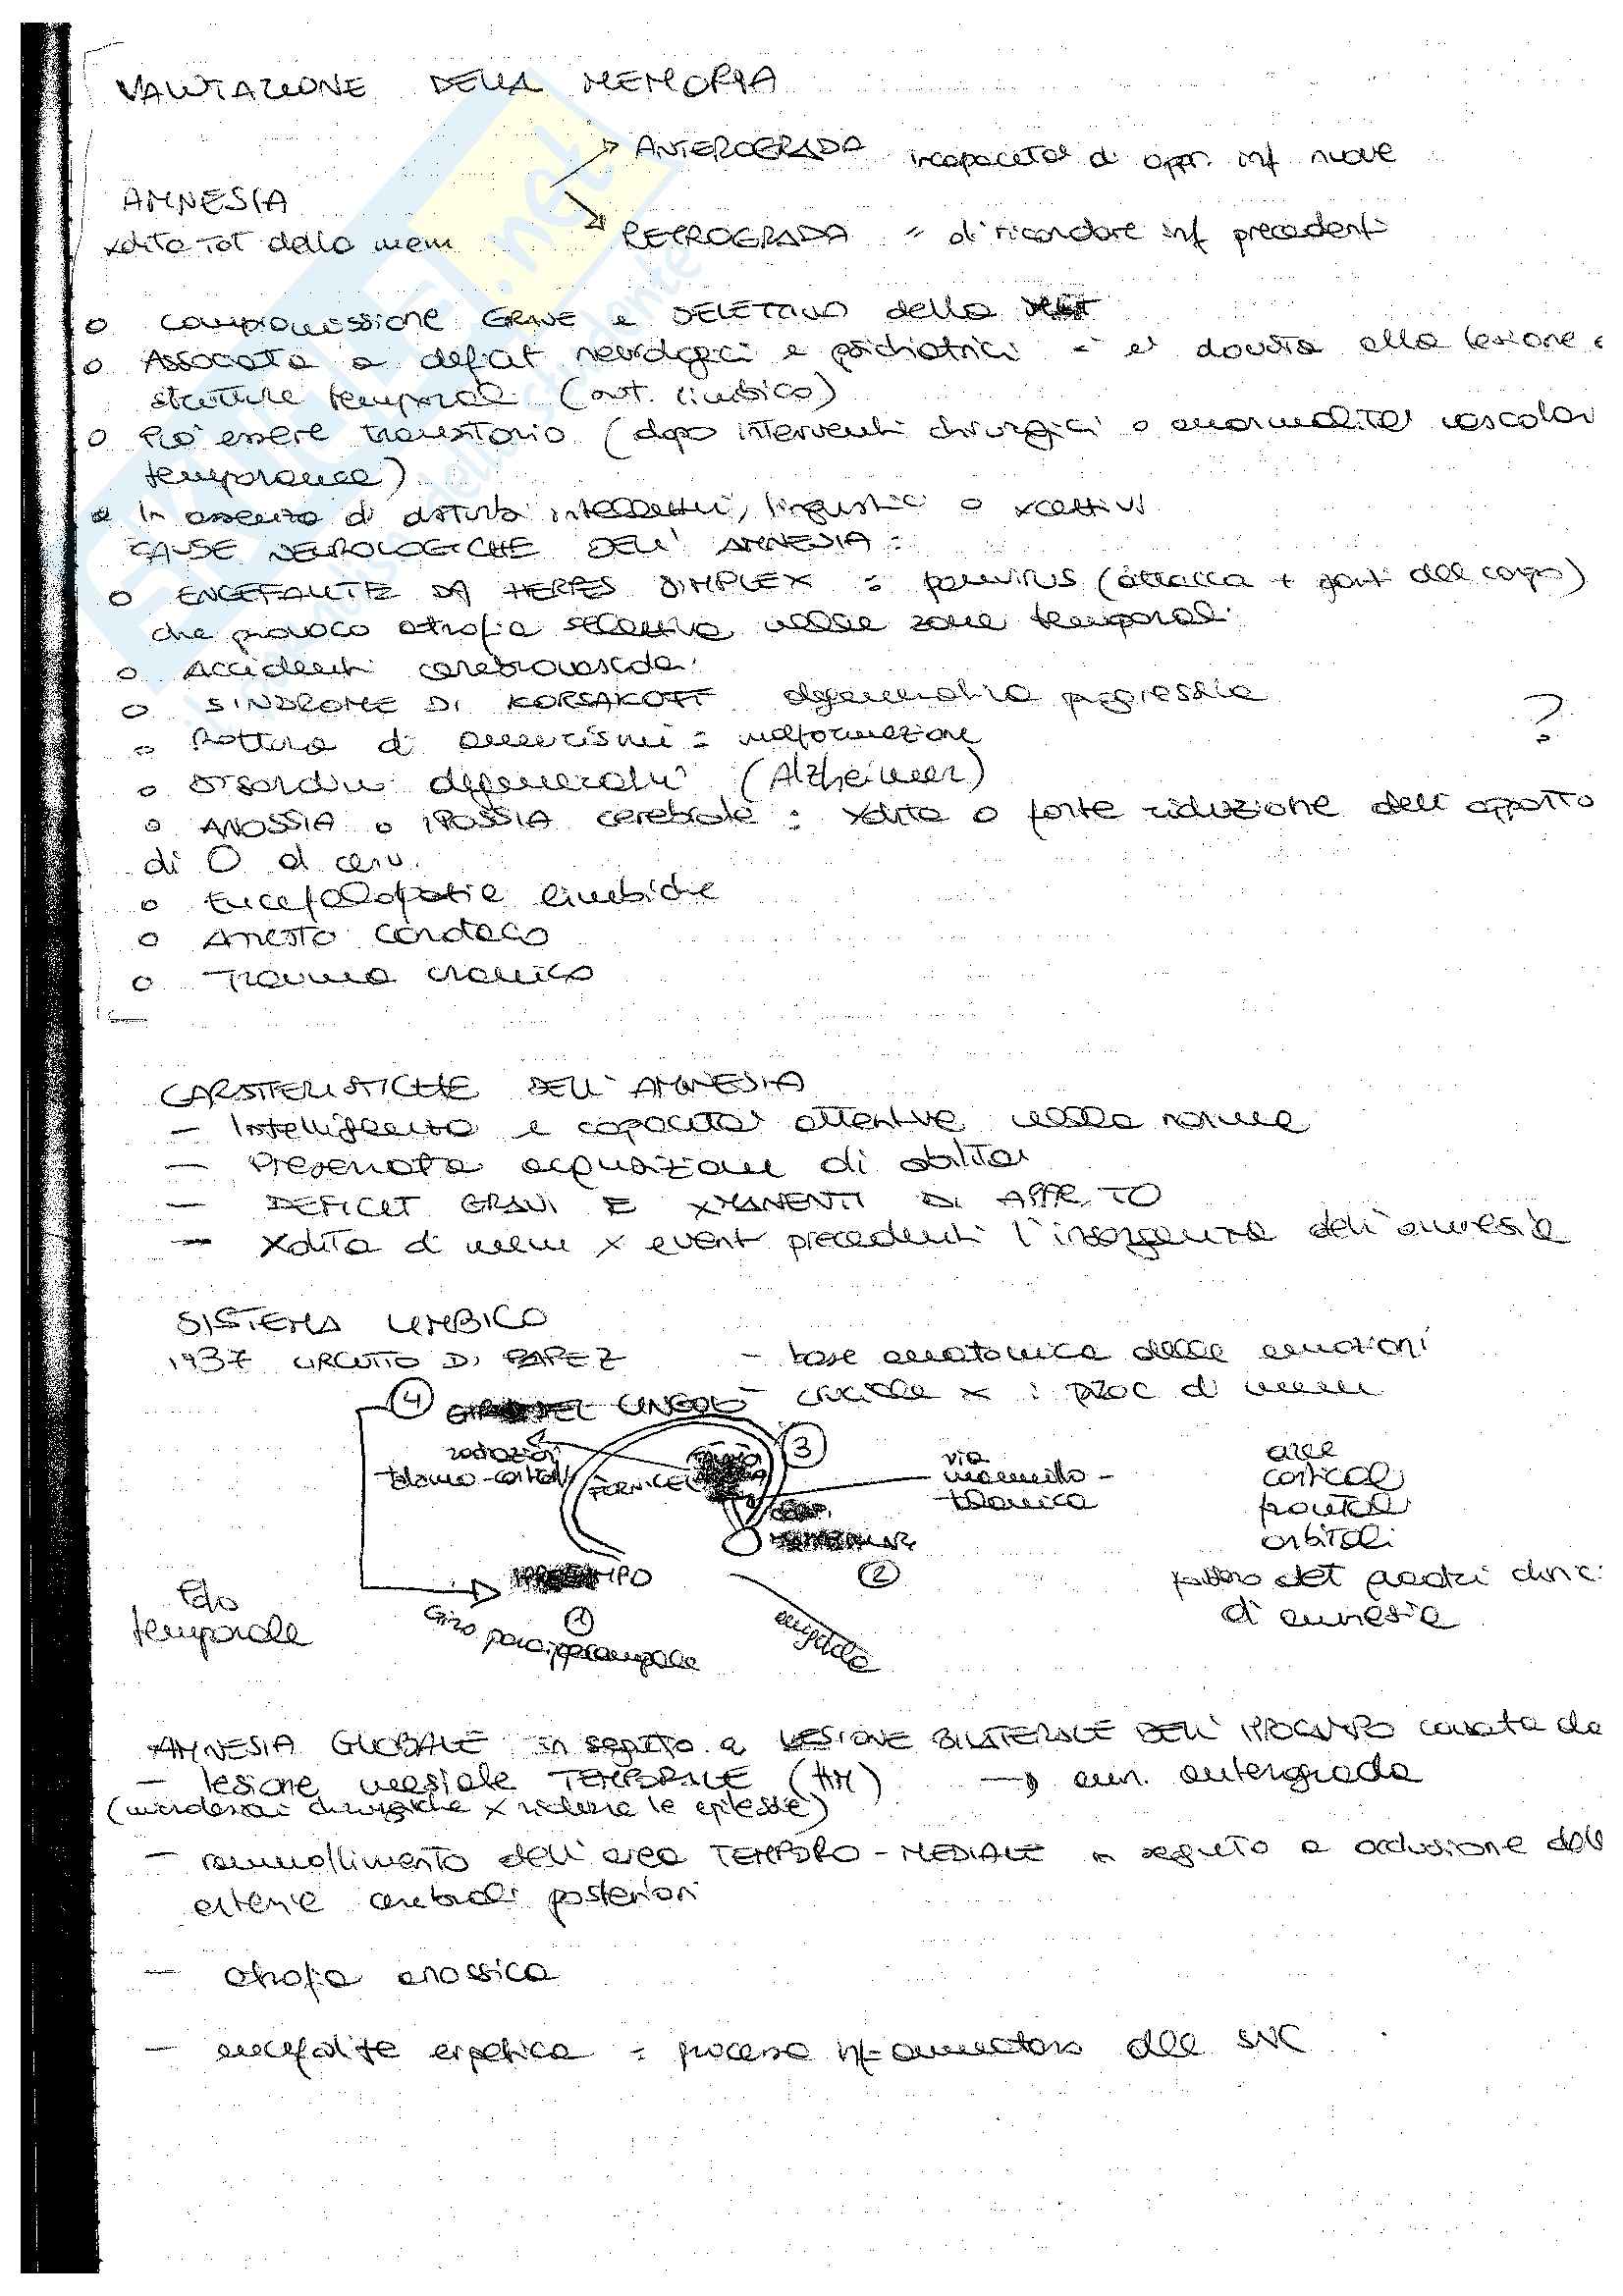 VALUTAZIONE DELLA MEMORIA
ANTEROGRADA incapacità di appr. inf nuove
AMNESIA
xdita tot della mem
RETROGRADA = di ricordare inf precedenti
o compromissione GRAVE e SELETTIVA della
o Associata a deficit neurologici e psichiatrici e è dovuta alla lesione
strutture temporali (ant. limbico)
o Può essere transitoria (dopo interventi chirurgici o anormalità vascolari
temporanea)
o In assenza di disturbi intellettivi, linguistici o xcettivi
CAUSE NEUROLOGICHE DELL' AMNESIA:
o ENCEFALITE DA HERPES SIMPLEX = (attacca + parti del corpo)
che provoca atrofia selettiva nelle zone temporali
o Accidenti cerebrovascolari
o SINDROME DI KORSAKOFF degenerativa progressiva
?
o Rottura di aneurismi = malformazione
o Disordini degenerativi (Alzheimer)
o ANOSSIA o IPOSSIA cerebrale : xdita o forte riduzione dell' apporto
di O al cerv.
o Encefalopatie limbiche
o Arresto cardiaco
o Trauma cranico
CARATTERISTICHE DELL' AMNESIA
- Intelligenza e capacità attentive nella norma
- Preservata acquisizione di abilità
- DEFICIT GRAVI E XMANENTI DI APPR.TO
- Xdita di mem x eventi precedenti l'insorgenza dell'amnesia
SISTEMA LIMBICO
1937 CIRCUITO DI PAPEZ - base anatomica delle emozioni
4 GIRO DEL CINGOLO - cruciale x i proc di mem
radiazioni
talamo-corticali
FORNICE
3
via
mammillo-
talamica
aree
corticali
frontali
orbitali
CORPI
2
IPPOCAMPO
quadri clinici
di amnesia
lobo
temporale
Giro paraippocampale
1
amigdala
AMNESIA GLOBALE in seguito a LESIONE BILATERALE DELL' IPPOCAMPO causata da
- lesione mesiale TEMPORALE (HM) → amn. anterograda
chirurgiche x ridurre le epilessie)
- rammollimento dell' area TEMPORO-MEDIALE in seguito a occlusione delle
arterie cerebrali posteriori
- atrofia anossica
- encefalite erpetica = processo infiammatorio del SNC